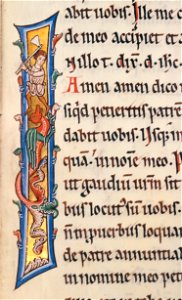 abit uobis. Ille me c
de meo accipiet et a
N illo t. dix̅. d. ih̅c.
Amen amen dico
siq̇d petieritis patrē
dabit uobis. Usq̄m
quā. in noīe meo. P
ut gaudiū ur̅m sit
bis locutꝰ sū uobis.
in ꝓuerbiis loquar
de patre annuntiab
in nomine meo pet